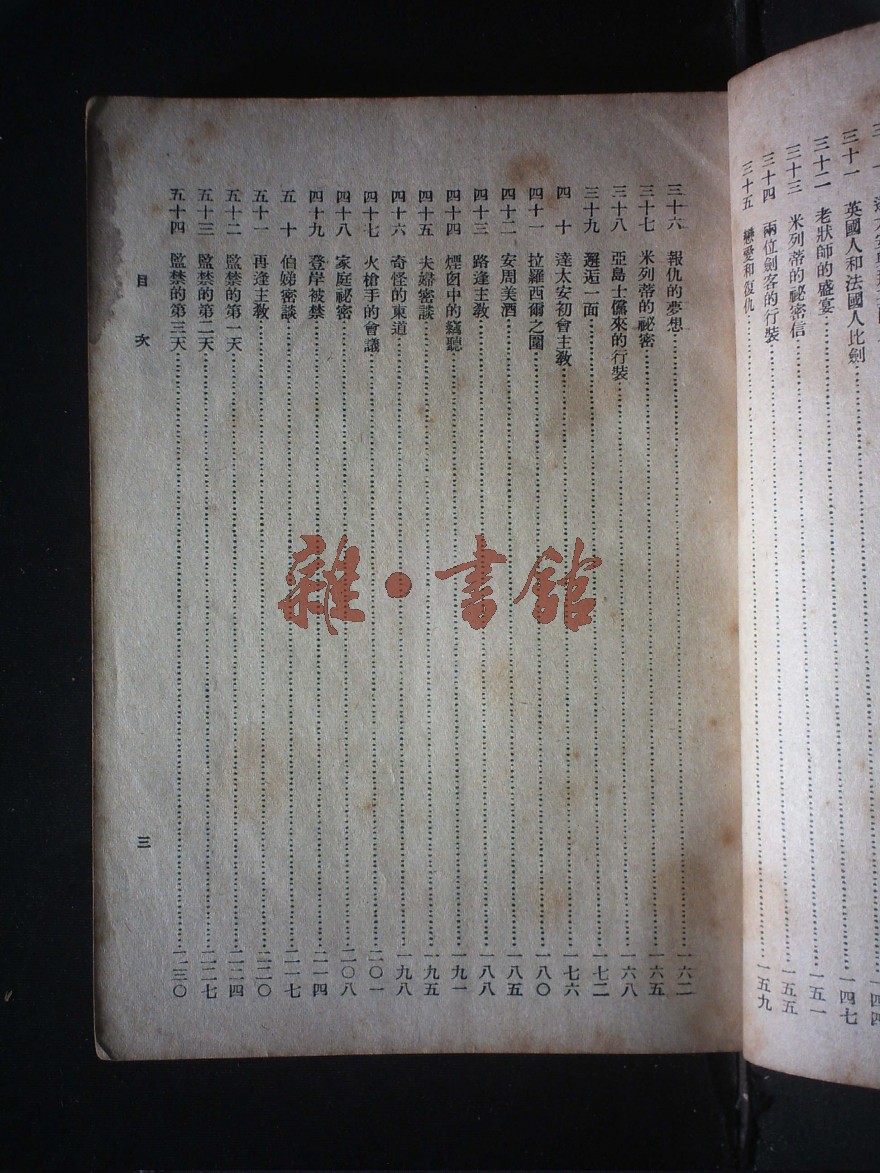 三十一 英國人和法國人比劍……一四四
三十二 老狀師的盛宴……一四七
三十三 米列蒂的祕密信……一五一
三十四 兩位劍客的行裝……一五五
三十五 戀愛和復仇……一五九
三十六 報仇的夢想……一六二
三十七 米列蒂的祕密……一六五
三十八 亞島士儻來的行裝……一六八
三十九 邂逅一面……一七二
四十 達太安初會主教……一七六
四十一 拉羅西爾之圍……一八〇
四十二 安周美酒……一八五
四十三 路逢主教……一八八
四十四 煙囱中的竊聽……一九一
四十五 夫婦密談……一九五
四十六 奇怪的東道……一九八
四十七 火槍手的會議……二〇一
四十八 家庭祕密……二〇八
四十九 登岸被禁……二一四
五十 伯娣密談……二一七
五十一 再逢主教……二二〇
五十二 監禁的第一天……二二四
五十三 監禁的第二天……二二七
五十四 監禁的第三天……二三〇
目次 三
雜·書館